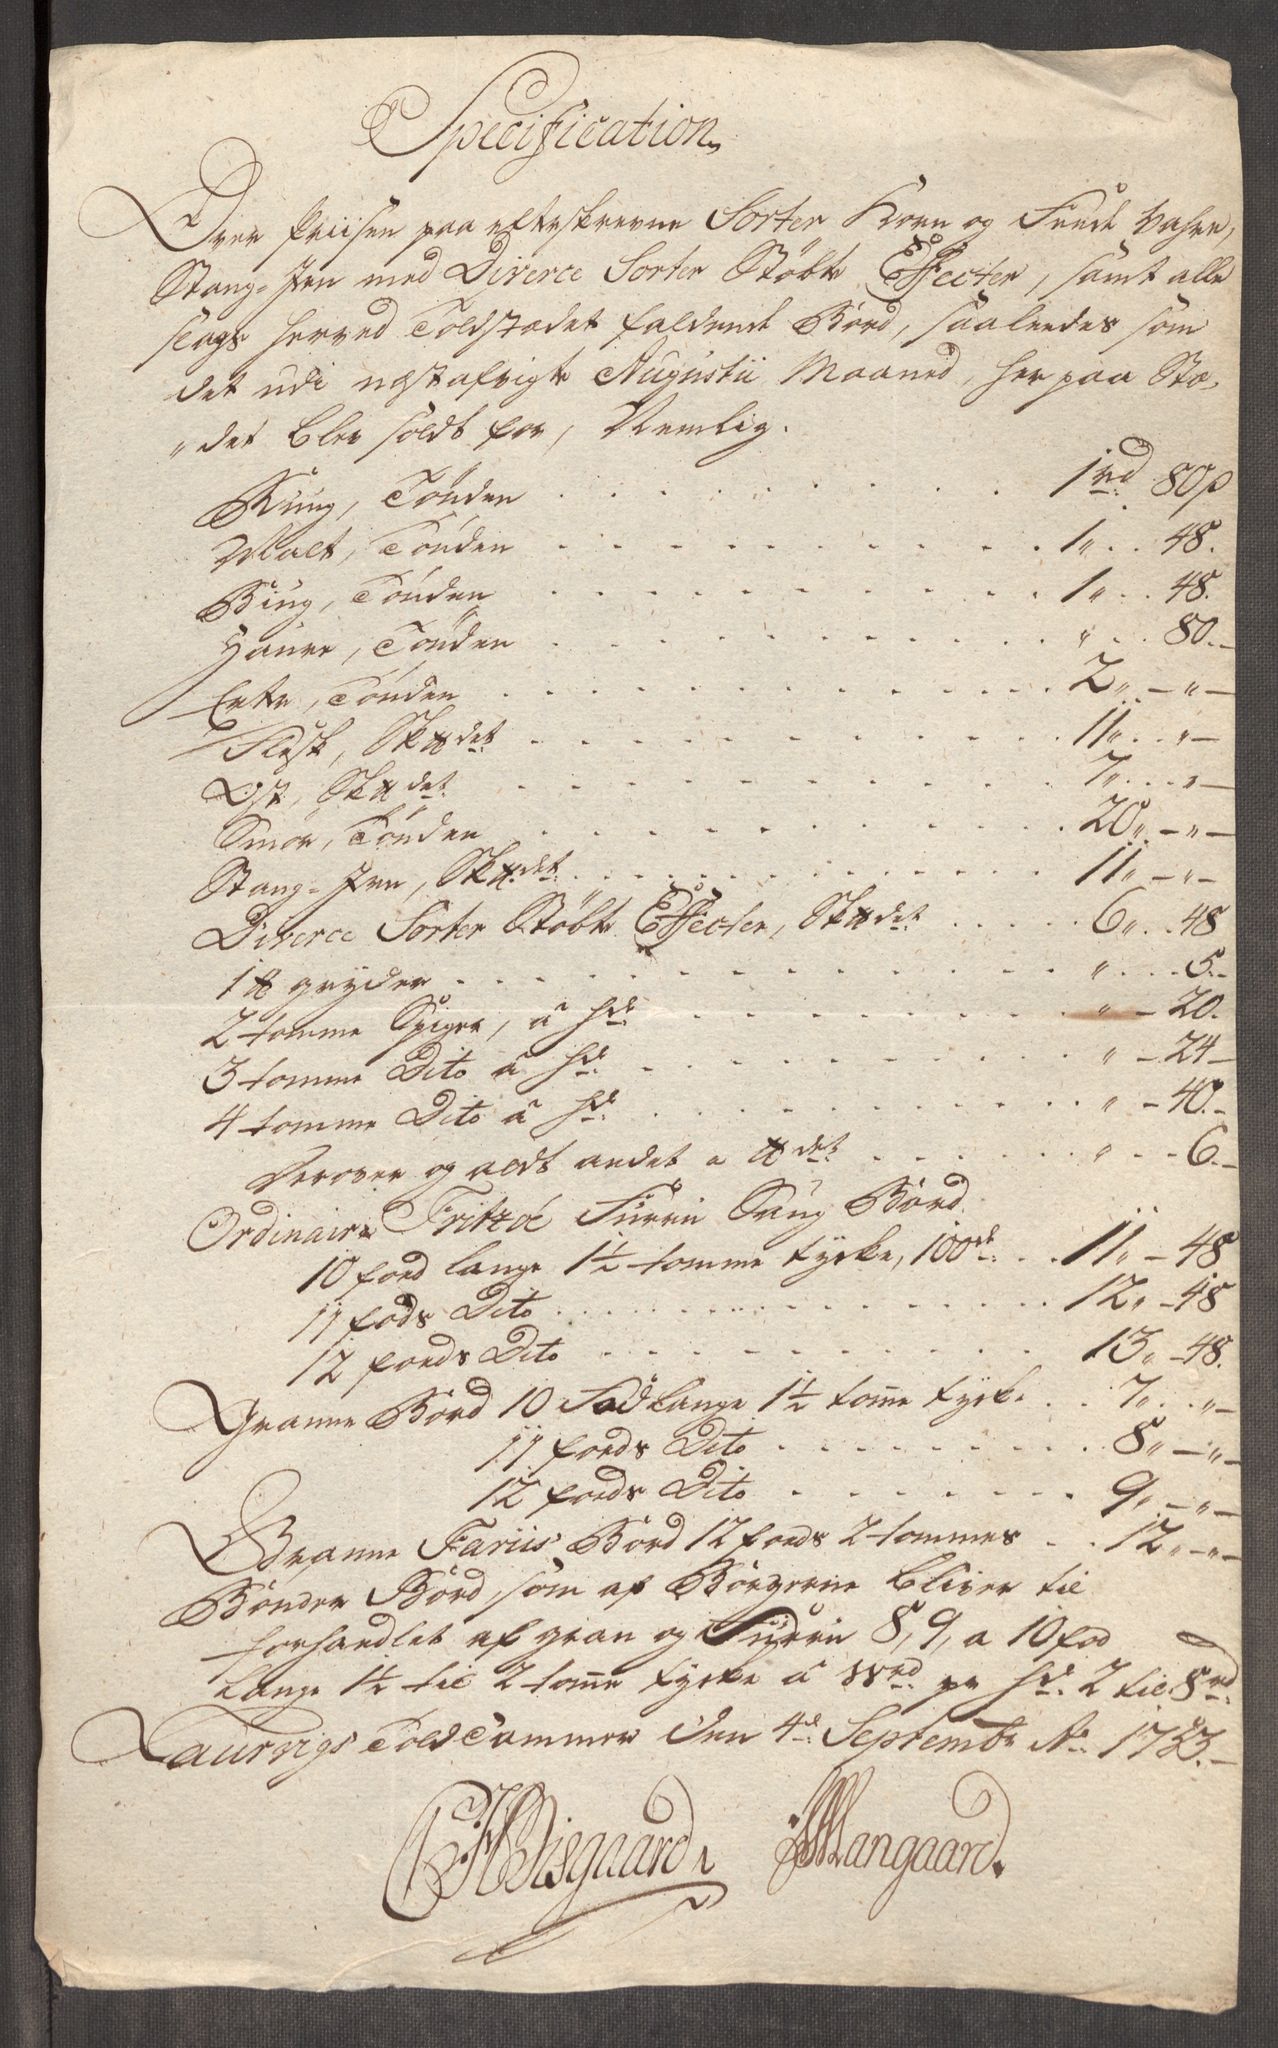 Specification
Over Priisen paa efterskrevne Sorter Korn og Feede Vahre,
Stang-Jern med Diverce Sorter Støbte Effecter, samt alle
slags herved Toldstædet faldende Bord, saaleedes som
det udi nestafvigte Augustii Maaned, her paa Stæ-
"det blev soldt for, Nemlig.
Rúúg, Tönden . . . 1 rd 80 s
Malt, Tönden . . . 1 " 48.
Biúg, Tönden . . . 1 " 48.
Haure, Tönden . . . " 80.
Erter, Tönden . . . 2 " "
Flesk, Sk℔det . . . 11 " "
Ost, Sk℔det . . . 7 " "
Smör, Tönden . . . 20 " "
Stang-Jern, Sk℔det . . . 11 " "
Diverce Sorter Støbte Effecter, Sk℔det . . . 6 " 48
1 ℔ gryder . . . " 5.
2 tomme Spiger, á Hde . . . " 20.
3 tomme Dito á Hde . . . " 24
4 tomme Dito á Hde . . . " 40.
og aldt andet a ℔det . . . " 6.
Ordinaire Fritzøe Fúrrú Saúg Bord
10 food lange 1½ tomme tycke, 100de . . . 11 " 48
11 fods Dito . . . 12 " 48
12 foods Dito . . . 13 " 48.
Granne Bord 10 Fod lange 1½ tome tycke . . 7 " "
11 foods Dito . . . 8 " "
12 foods Dito . . . 9 " "
Granne Fariis Bord 12 foods 2 tommes . . 12 " "
Bönder Bord, som af Borgerne bliver til
forhandlet af gran og Fúrrú 8, 9, a 10 fod
lange 1½ til 2 tome tycke á pr Hde 2 til 8 rd
Laurvigs Told Cammer den 4de Septembr Ao 1753.
Wisgaard Mangaard.